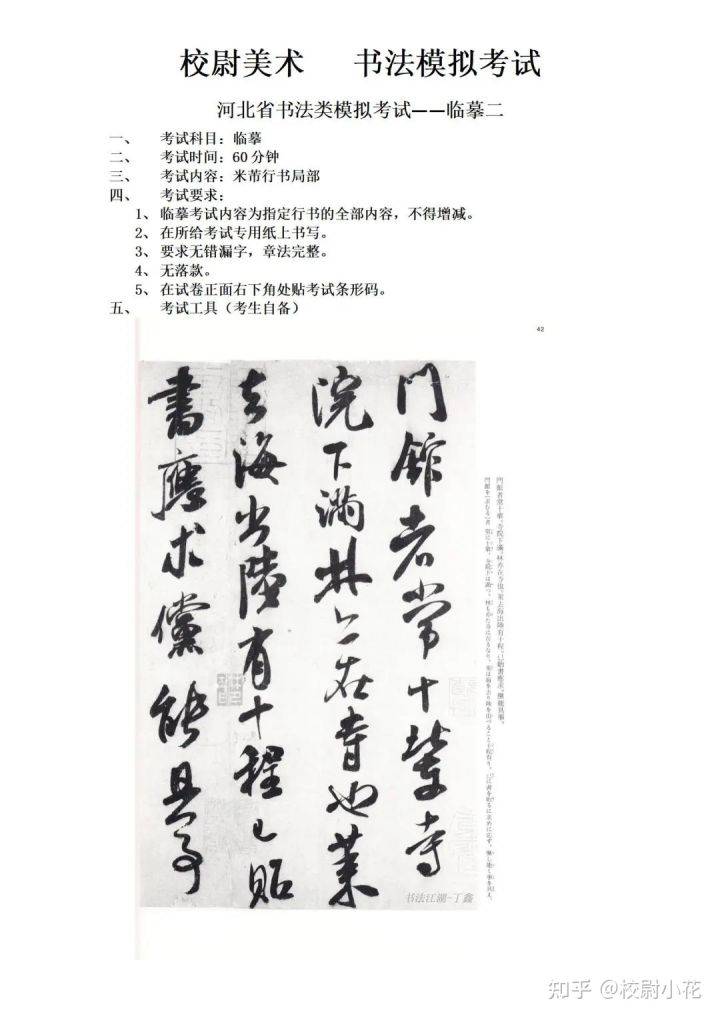 校尉美术 书法模拟考试
河北省书法类模拟考试——临摹二
一、 考试科目：临摹
二、 考试时间：60分钟
三、 考试内容：米芾行书局部
四、 考试要求：
1、临摹考试内容为指定行书的全部内容，不得增减。
2、在所给考试专用纸上书写。
3、要求无错漏字，章法完整。
4、无落款。
5、在试卷正面右下角处贴考试条形码。
五、 考试工具（考生自备）
42
門館者常十輩寺
院下滿林亦在寺也葉
去海出陸有十程已貽
書應求儻能具事
书法江湖-丁鑫
知乎 @校尉小花